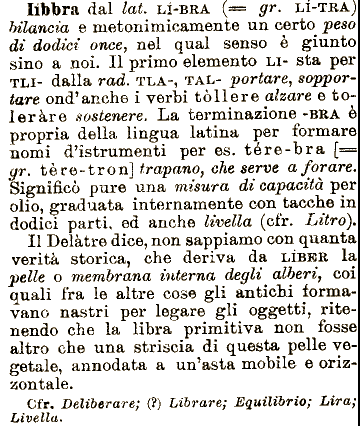 libbra dal lat. LÍ-BRA (= gr. LÍ-TRA)
bilancia e metonimicamente un certo peso
di dodici once, nel qual senso è giunto
sino a noi. Il primo elemento LI- sta per
TLI- dalla rad. TLA-, TAL- portare, soppor-
tare ond'anche i verbi tòllere alzare e to-
leràre sostenere. La terminazione -BRA è
propria della lingua latina per formare
nomi d'istrumenti per es. tére-bra [=
gr. tère-tron] trapano, che serve a forare.
Significò pure una misura di capacità per
olio, graduata internamente con tacche in
dodici parti. ed anche livella (cfr. Litro).
Il Delàtre dice, non sappiamo con quanta
verità storica, che deriva da LÍBER la
pelle o membrana interna degli alberi, coi
quali fra le altre cose gli antichi forma-
vano nastri per legare gli oggetti, rite-
nendo che la libra primitiva non fosse
altro che una striscia di questa pelle ve-
getale, annodata a un'asta mobile e oriz-
zontale.
Cfr. Deliberare; (?) Librare; Equilibrio; Lira;
Livella.